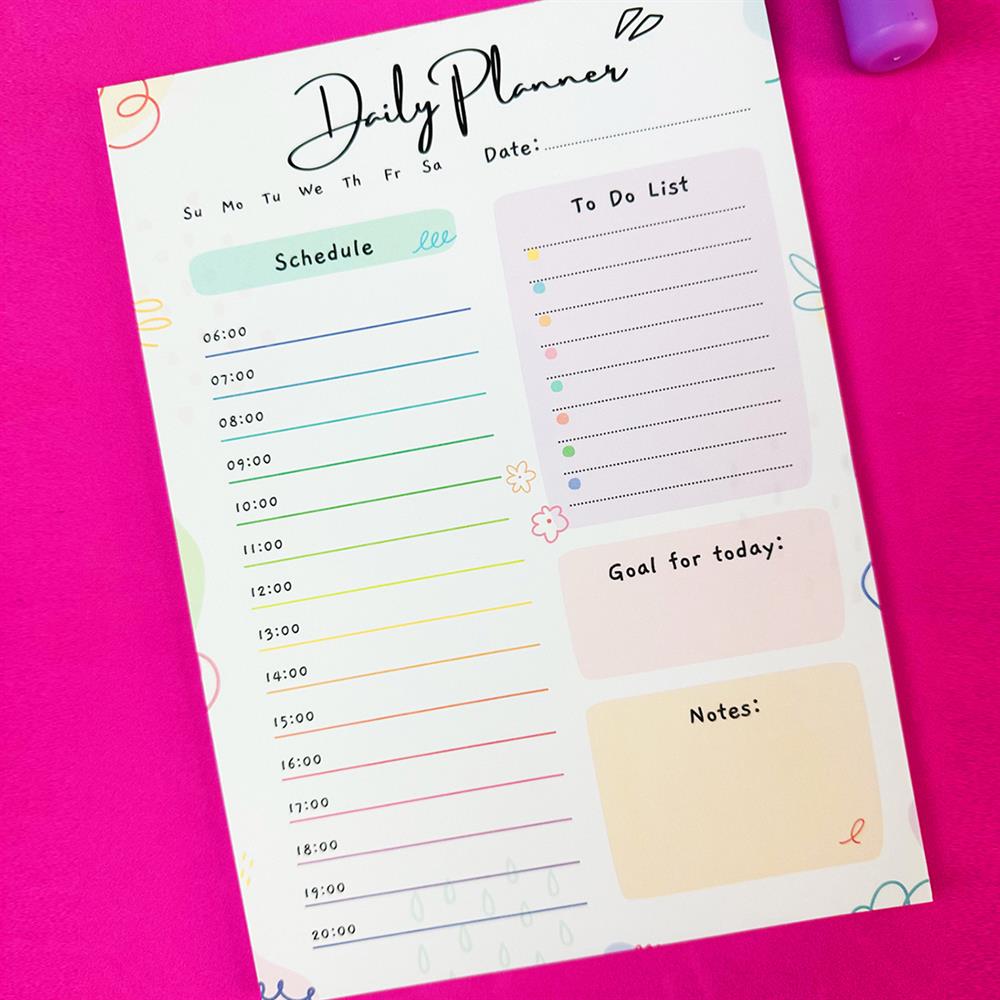 Daily Planner
Su Mo Tu We Th Fr Sa
Date:
Schedule
06:00
07:00
08:00
09:00
10:00
11:00
12:00
13:00
14:00
15:00
16:00
17:00
18:00
19:00
20:00
To Do List
Goal for today:
Notes: